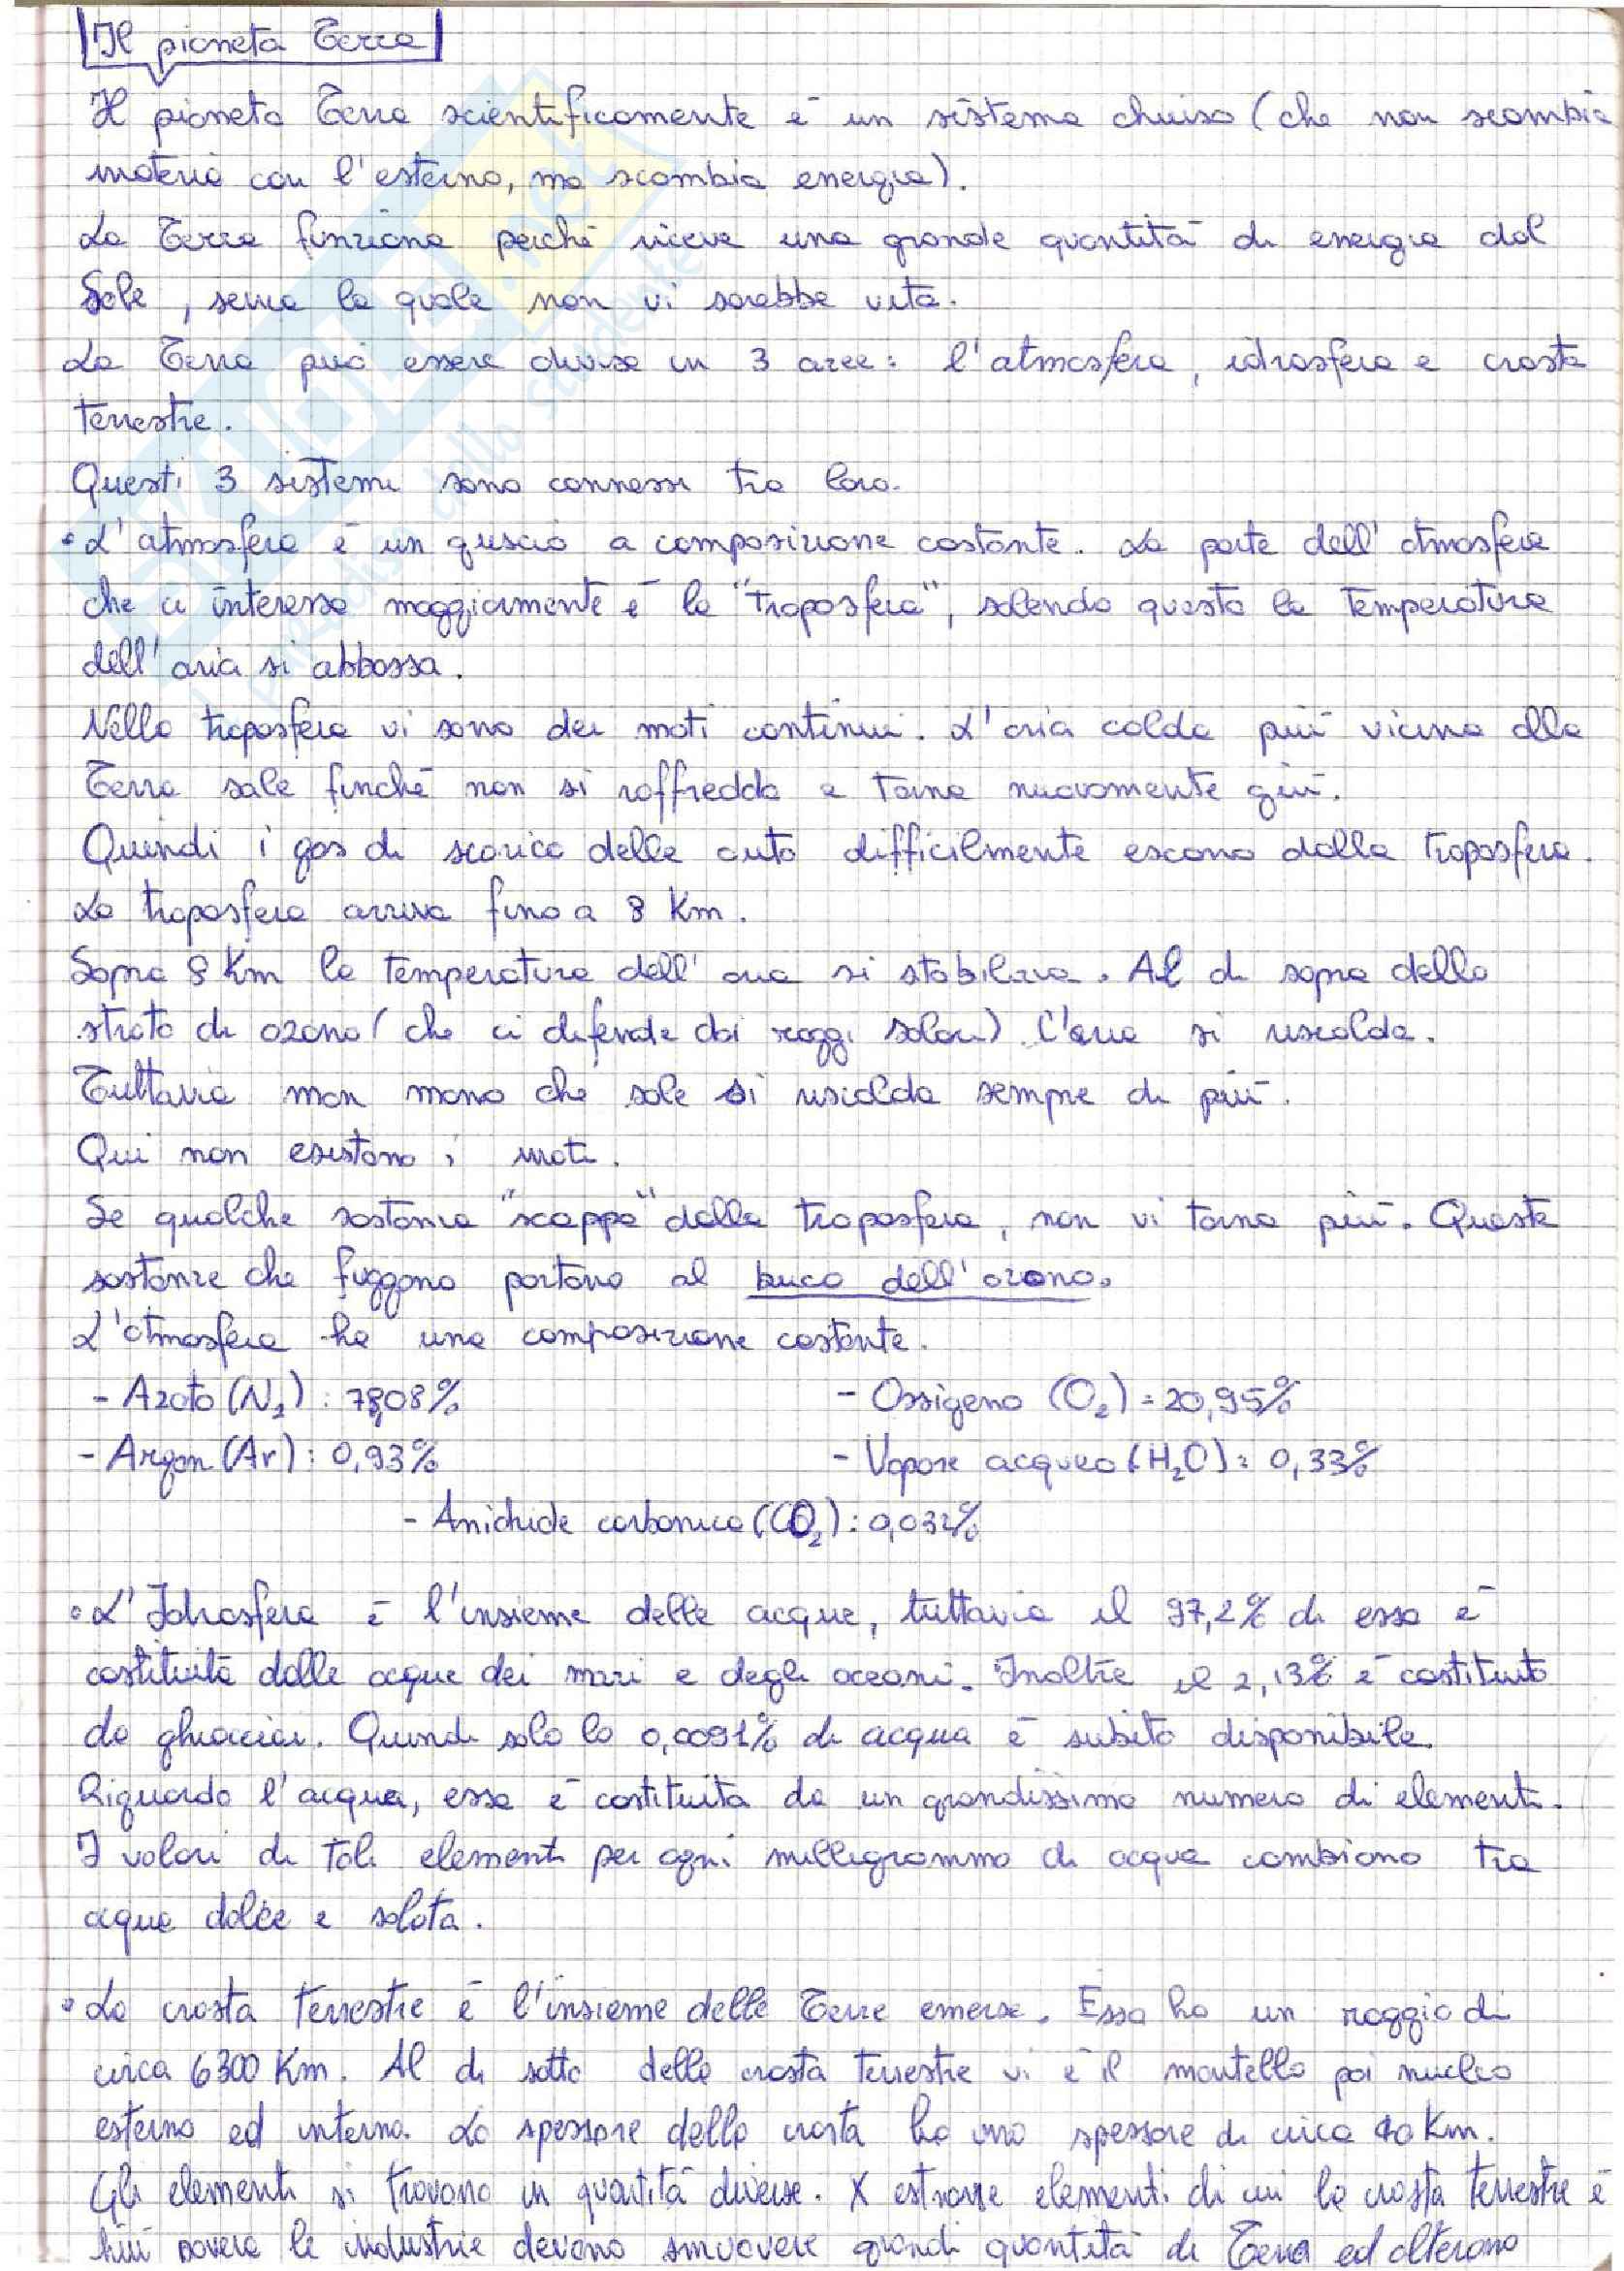 Il pianeta Terra
Il pianeta Terra scientificamente è un sistema chiuso (che non scambia
materia con l'esterno, ma scambia energia).
La Terra funziona perché riceve una grande quantità di energia dal
Sole, senza la quale non vi sarebbe vita.
La Terra può essere divisa in 3 aree: l'atmosfera, idrosfera e crosta
terrestre.
Questi 3 sistemi sono connessi tra loro.
• L'atmosfera è un guscio a composizione costante. La parte dell'atmosfera
che ci interessa maggiormente è la "troposfera", salendo questa la temperatura
dell'aria si abbassa.
Nella troposfera vi sono dei moti continui. L'aria calda più vicina alla
Terra sale finché non si raffredda e torna nuovamente giù.
Quindi i gas di scarico delle auto difficilmente escono dalla troposfera.
La troposfera arriva fino a 8 Km.
Sopra 8 Km la temperatura dell'aria si stabilizza. Al di sopra dello
strato di ozono (che ci difende dai raggi solari) l'aria si riscalda.
Tuttavia man mano che sale si riscalda sempre di più.
Qui non esistono i moti.
Se qualche sostanza "scappa" dalla troposfera, non vi torna più. Queste
sostanze che fuggono portano al buco dell'ozono.
L'atmosfera ha una composizione costante.
- Azoto (N2) : 78,08% - Ossigeno (O2) : 20,95%
- Argon (Ar) : 0,93% - Vapore acqueo (H2O) : 0,33%
- Anidride carbonica (CO2) : 0,032%
• L'Idrosfera è l'insieme delle acque, tuttavia il 97,2% di essa è
costituita dalle acque dei mari e degli oceani. Inoltre il 2,13% è costituito
da ghiacciai. Quindi solo lo 0,0091% di acqua è subito disponibile.
Riguardo l'acqua, essa è costituita da un grandissimo numero di elementi.
I valori di tali elementi per ogni milligrammo di acqua cambiano tra
acqua dolce e salata.
• La crosta terrestre è l'insieme delle Terre emerse. Essa ha un raggio di
circa 6300 Km. Al di sotto della crosta terrestre vi è il mantello poi nucleo
esterno ed interno. Lo spessore della crosta ha uno spessore di circa 40 Km.
Gli elementi si trovano in quantità diverse. X estrarre elementi di cui la crosta terrestre è
più povera le industrie devono smuovere grandi quantità di Terra ed alterano